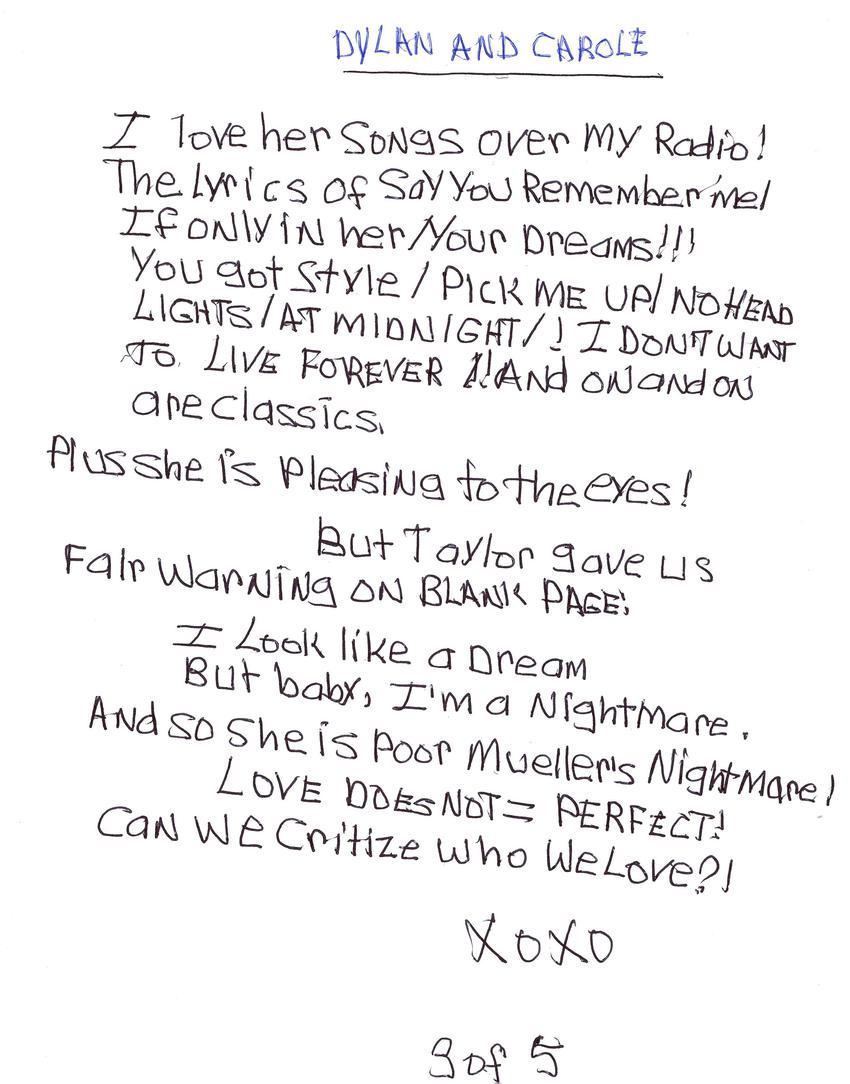 DYLAN AND CAROLE
I love her SONgs over My Radio!
The Lyrics of Say You Remember me/
If only iN her/Your Dreams!!!
You got Style / PICK ME UP/ NO HEAD
LIGHTS / AT MIDNIGHT/! I DON'T WANT
TO LIVE FOREVER !! ANd ON aNd ON
are classics.
Plus she is Pleasing to the eyes!
But Taylor gave us
Fair WarNiNg ON BLANK PAGE:
I Look like a Dream
But baby, I'm a Nightmare.
ANd so She is Poor Mueller's Nightmare!
LOVE DOES NOT = PERFECT!
CaN WE Critize Who We Love?!
XOXO
3 of 5